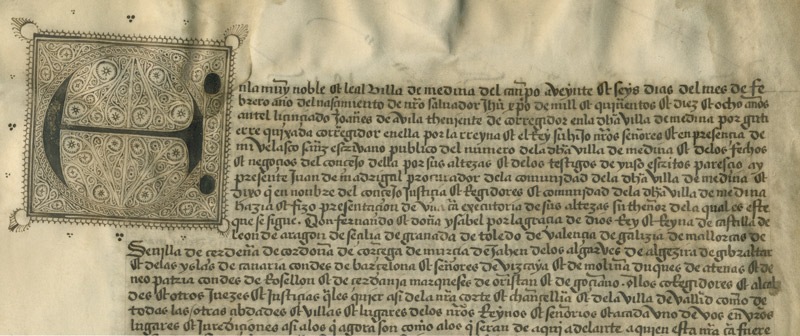 En la muy noble et leal villa de medina del canpo a veynte et seys dias del mes de fe
brero año del nasçimiento de nro saluador ihu xpo de mill et quinientos et diez et ocho anos
ante l liçençiado joanes de auila theniente de corregidor en la dha villa de medina por guti
erre quixada corregidor en ella por la rreyna et el rey su hijo nros señores et en presençia de
mi velasco escriuano publico del numero de la dha villa de medina et de los fechos
et negoçios del conçejo della por sus altezas et de los testigos de yuso escritos paresçio ay
presente juan de madrigal procurador de la comunidad de la dha villa de medina et
dixo q en nonbre del conçejo justiçia et regidores et comunidad de la dha villa de medina
hazia et fizo presentaçion de vna executoria de sus altezas su thenor de la qual es este
que se sigue. Don fernando et doña ysabel por la graçia de dios rey et reyna de castilla de
leon de aragon de seçilia de granada de toledo de valençia de galizia de mallorcas de
Seuilla de çerdeña de cordoua de corçega de murçia de jahen de los algarues de algezira de gibraltar
et de las yslas de canaria condes de barçelona et señores de vizcaya et de molina duques de atenas et de
neo patria condes de rosellon et de çerdania marqueses de oristan et de goçiano. A los coregidores et alcal
des et otros juezes et justiçias qles quier asi de la nra corte et chançelleria et de la villa de vallid como de
todas las otras çibdades et villas et lugares de los nros reynos et señorios et a cada vno de vos en vros
lugares et juridiçiones asi a los q agora son como a los q seran de aqui adelante a quien esta nra carta fuere